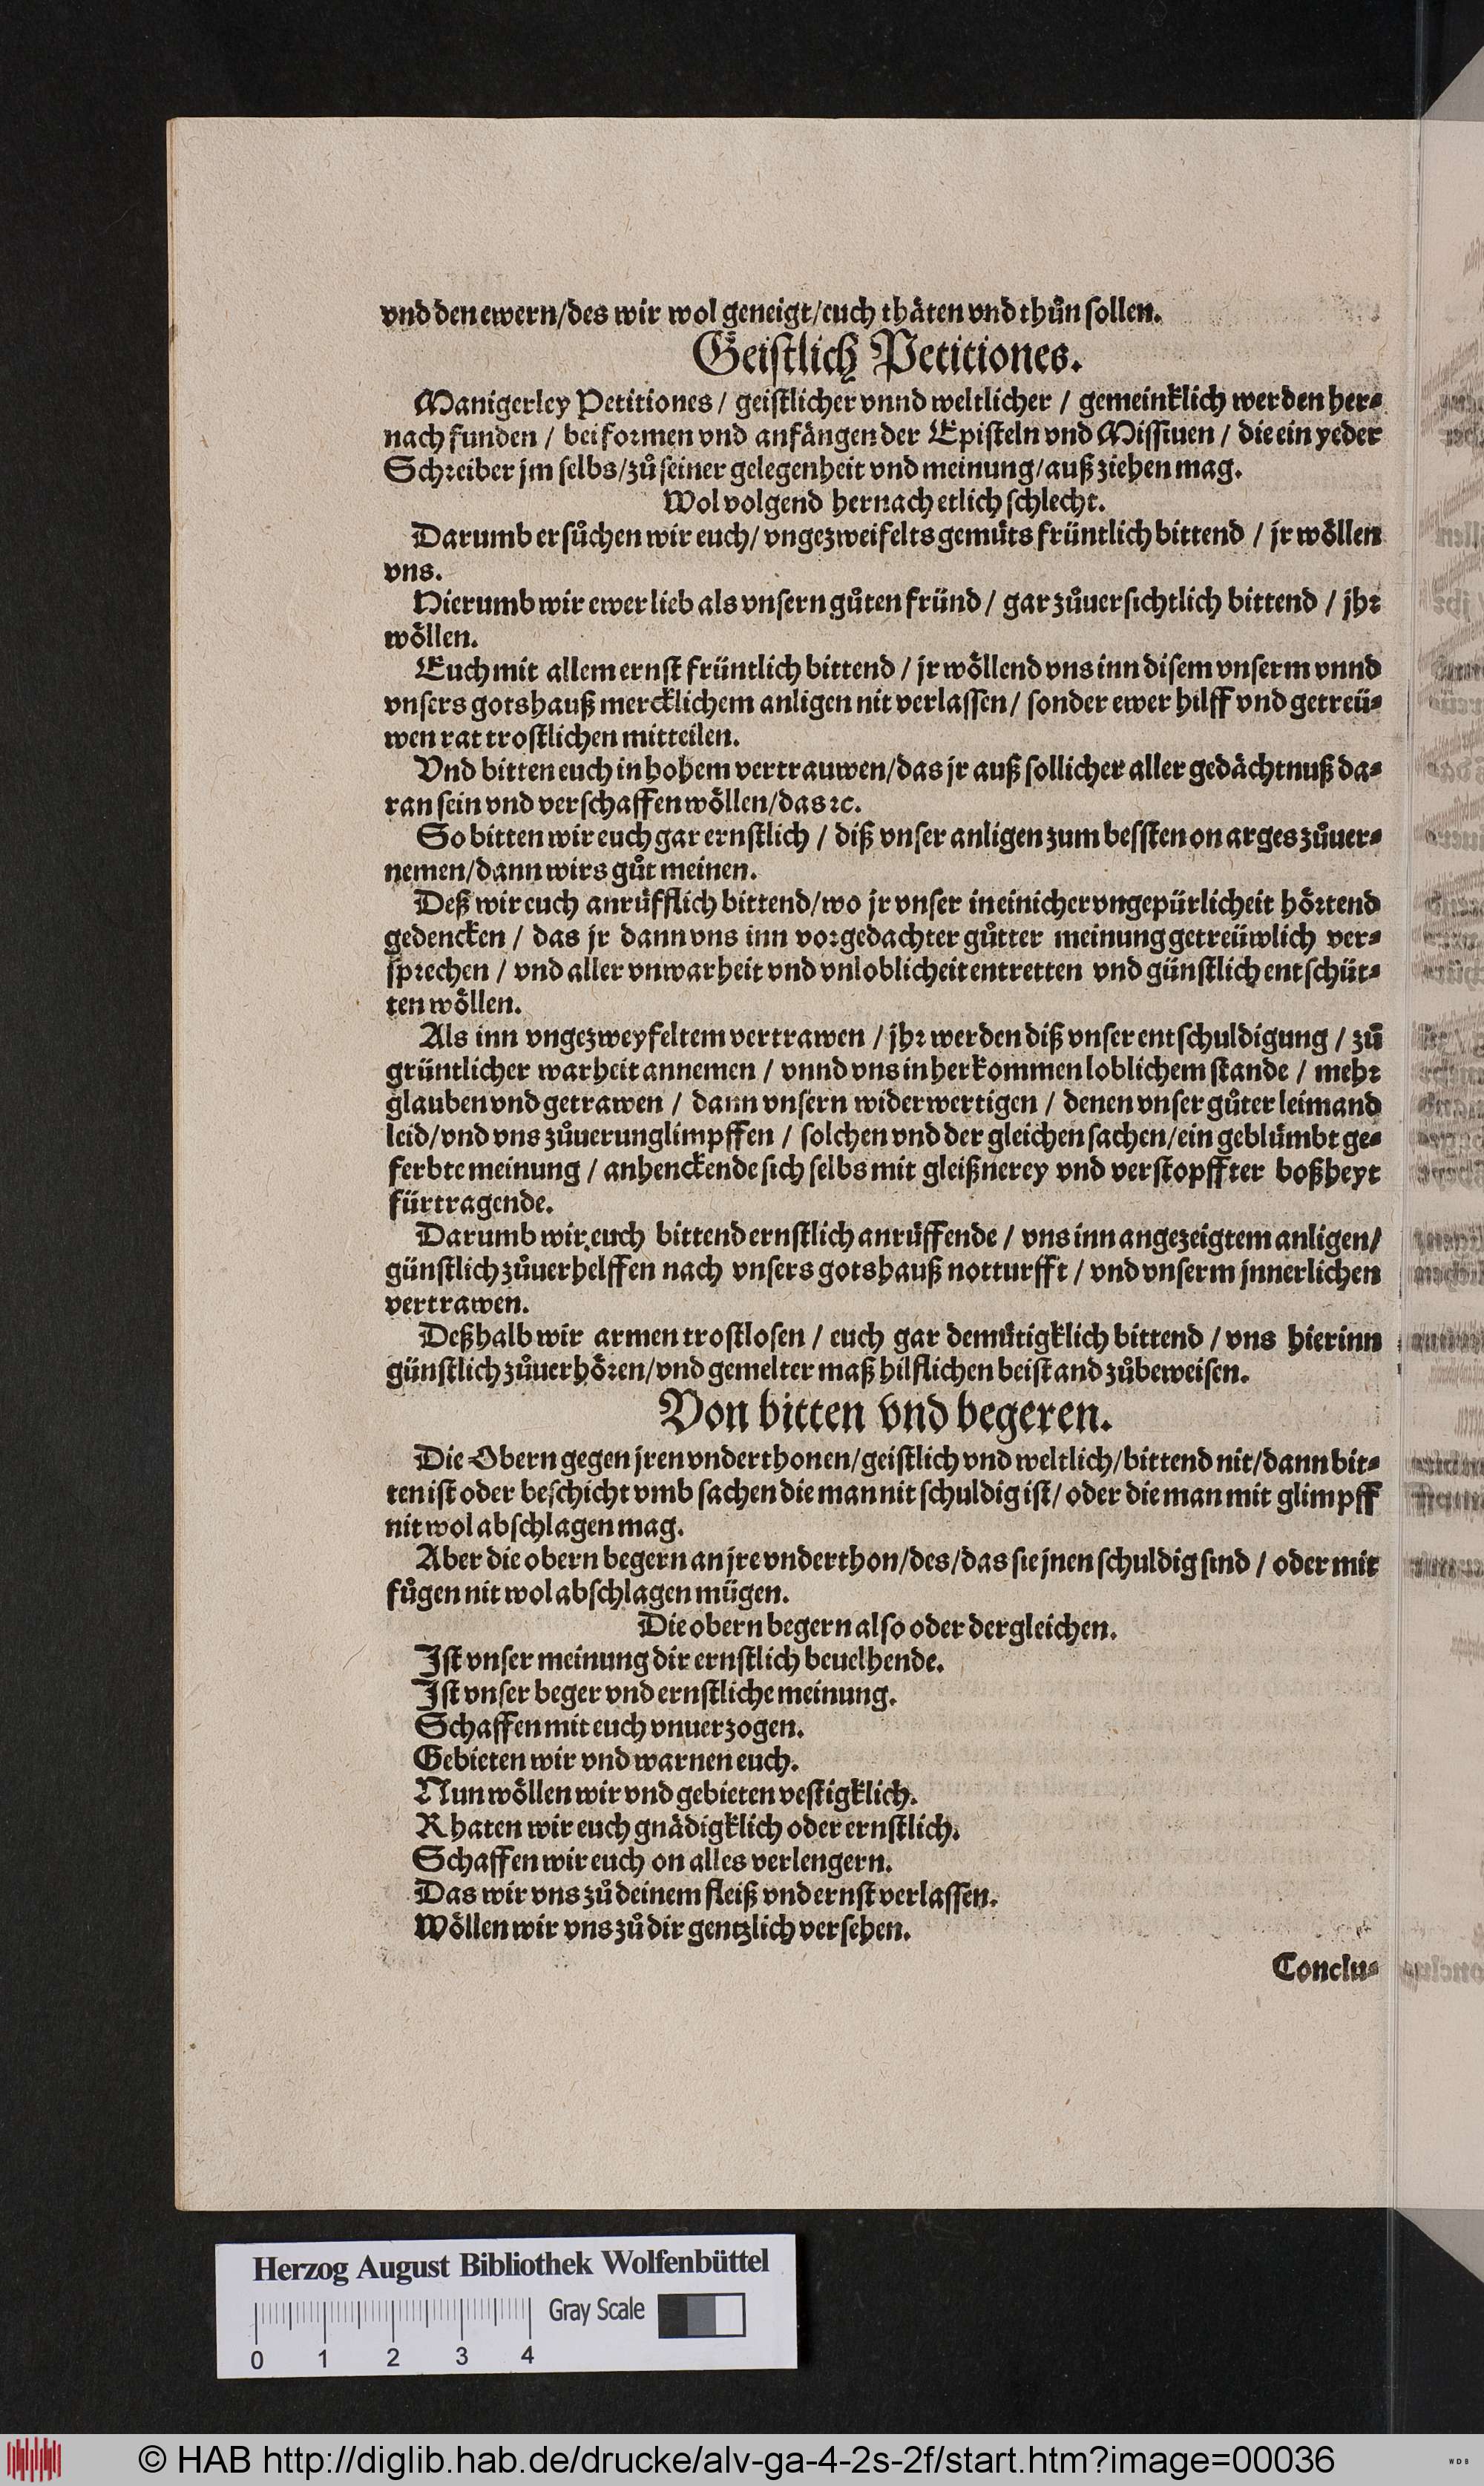 vnd den ewern/des wir wol geneigt/euch thäten vnd thůn sollen.
Geistlich Petitiones.
Manigerley Petitiones / geistlicher vnnd weltlicher / gemeinklich werden her⸗
nach funden / bei formen vnd anfängen der Episteln vnd Missiuen / die ein yeder
Schreiber jm selbs/zů seiner gelegenheit vnd meinung/auß ziehen mag.
Wol volgend hernach etlich schlecht.
Darumb ersůchen wir euch/ vngezweifelts gemüts früntlich bittend / jr wöllen
vns.
Hierumb wir ewer lieb als vnsern gůten fründ / gar zůuersichtlich bittend / jhr
wöllen.
Euch mit allem ernst früntlich bittend / jr wöllend vns inn disem vnserm vnnd
vnsers gotshauß mercklichem anligen nit verlassen / sonder ewer hilff vnd getreü⸗
wen rat trostlichen mitteilen.
Vnd bitten euch in hohem vertrauwen/das jr auß sollicher aller gedächtnuß da⸗
ran sein vnd verschaffen wöllen/das ꝛc.
So bitten wir euch gar ernstlich / diß vnser anligen zum bessten on arges zůuer⸗
nemen/dann wirs gůt meinen.
Deß wir euch anrüfflich bittend/wo jr vnser in einicher vngepürlicheit hörtend
gedencken / das jr dann vns inn vorgedachter gůtter meinung getreüwlich ver⸗
sprechen / vnd aller vnwarheit vnd vnloblicheit entretten vnd günstlich entschüt⸗
ten wöllen.
Als inn vngezweyfeltem vertrawen / jhr werden diß vnser entschuldigung / zů
grüntlicher warheit annemen / vnnd vns in herkommen loblichem stande / mehr
glauben vnd getrawen / dann vnsern widerwertigen / denen vnser gůter leimand
leid/vnd vns zůuerunglimpffen / solchen vnd der gleichen sachen/ein geblümbt ge⸗
ferbte meinung / anhenckende sich selbs mit gleißnerey vnd verstopffter boßheyt
fürtragende.
Darumb wir euch bittend ernstlich anrüffende / vns inn angezeigtem anligen/
günstlich zůuerhelffen nach vnsers gotshauß notturfft / vnd vnserm jnnerlichen
vertrawen.
Deßhalb wir armen trostlosen / euch gar demütigklich bittend / vns hierinn
günstlich zůuerhören/vnd gemelter maß hilflichen beistand zůbeweisen.
Von bitten vnd begeren.
Die Obern gegen jren vnderthonen/geistlich vnd weltlich/bittend nit/dann bit⸗
ten ist oder beschicht vmb sachen die man nit schuldig ist/ oder die man mit glimpff
nit wol abschlagen mag.
Aber die obern begern an jre vnderthon/des/das sie jnen schuldig sind / oder mit
fůgen nit wol abschlagen mügen.
Die obern begern also oder dergleichen.
Ist vnser meinung dir ernstlich beuelhende.
Ist vnser beger vnd ernstliche meinung.
Schaffen mit euch vnuerzogen.
Gebieten wir vnd warnen euch.
Nun wöllen wir vnd gebieten vestigklich.
Rhaten wir euch gnädigklich oder ernstlich.
Schaffen wir euch on alles verlengern.
Das wir vns zů deinem fleiß vnd ernst verlassen.
Wöllen wir vns zů dir gentzlich versehen.
Conclu⸗
Herzog August Bibliothek Wolfenbüttel
Gray Scale
0 1 2 3 4
© HAB http://diglib.hab.de/drucke/alv-ga-4-2s-2f/start.htm?image=00036
WDB